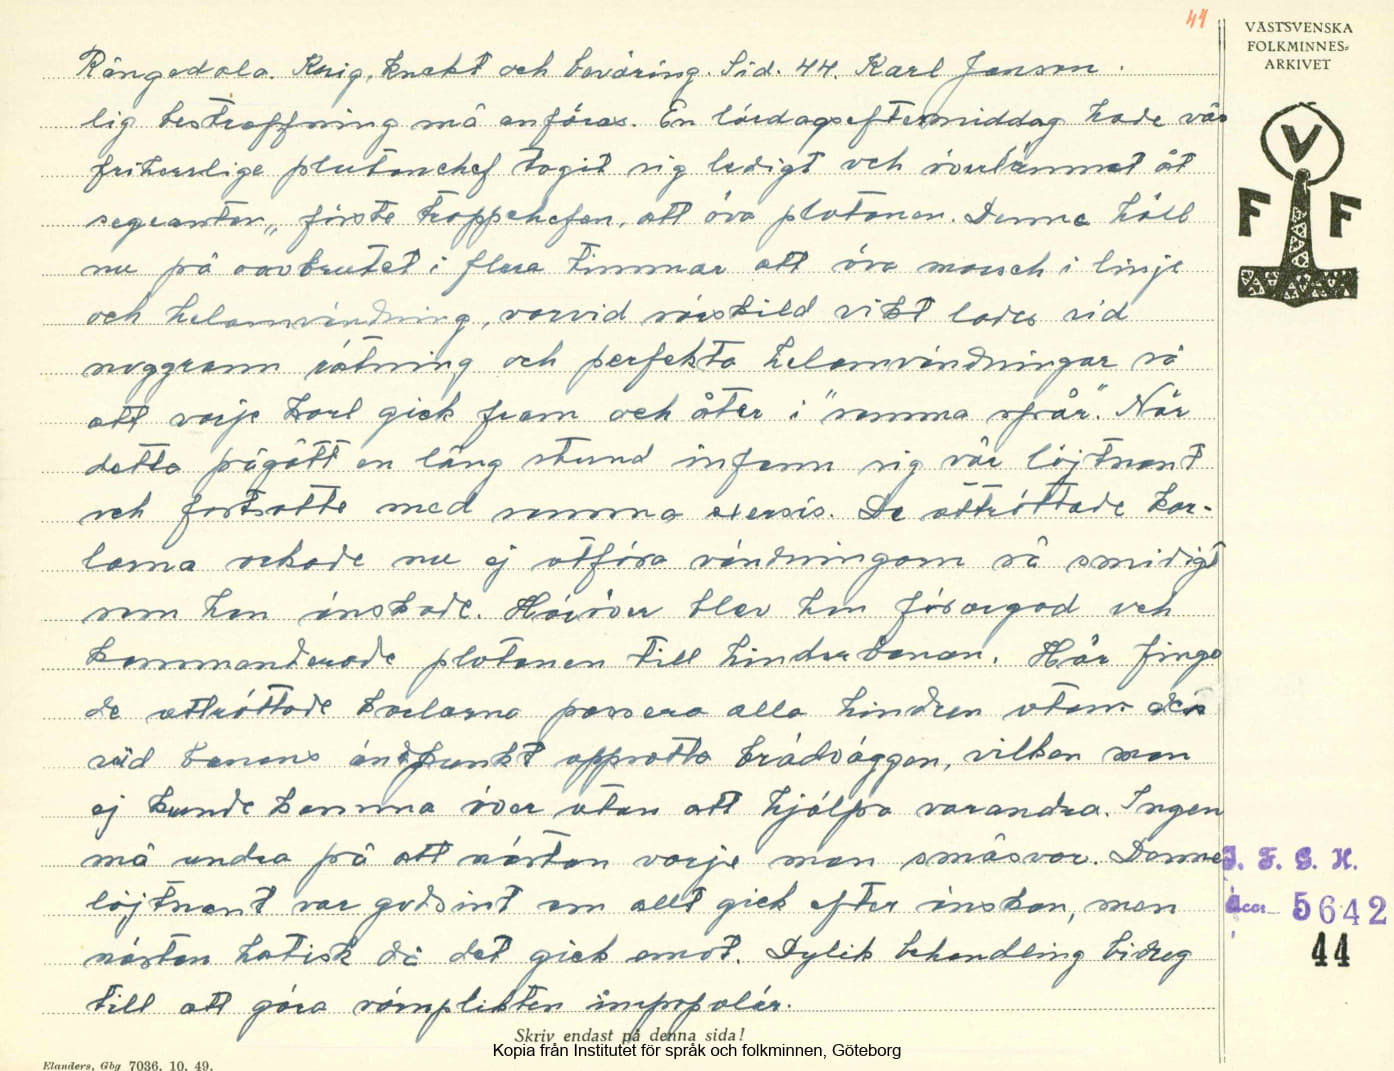 44
VÄSTSVENSKA
FOLKMINNES=
ARKIVET
V
F F
Rångedala. Krig, knekt och beväring. Sid. 44. Karl Janson.
lig bestraffning må anföras. En lördagseftermiddag hade vår
friherrlige plutonchef tagit sig ledigt och överlämnat åt
sergeanten, förste troppchefen, att öva plutonen. Denne höll
nu på oavbrutet i flera timmar att öva marsch i linje
och helomvändning, varvid särskild vikt lades vid
noggrann rätning och perfekta helomvändningar så
att varje karl gick fram och åter i "samma spår". När
detta pågått en lång stund infann sig vår löjtnant
och fortsatte med samma exersis. De uttröttade kar-
larna orkade nu ej utföra vändningarna så smidigt
som han önskade. Häröver blev han förargad och
kommenderade plutonen till hinderbanan. Här fingo
de uttröttade karlarna passera alla hindren utom den
vid banans ändpunkt uppsatta brädväggen, vilken man
ej kunde komma över utan att hjälpa varandra. Ingen
må undra på att nästan varje man småsvor. Denne
löjtnant var godsint om allt gick efter önskan, men
nästan hatisk då det gick emot. Dylik behandling bidrog
till att göra värnplikten impopulär.
I. F. G. H.
Acc. 5642
44
Skriv endast på denna sida!
Kopia från Institutet för språk och folkminnen, Göteborg
Elanders, Gbg 7036. 10. 49.